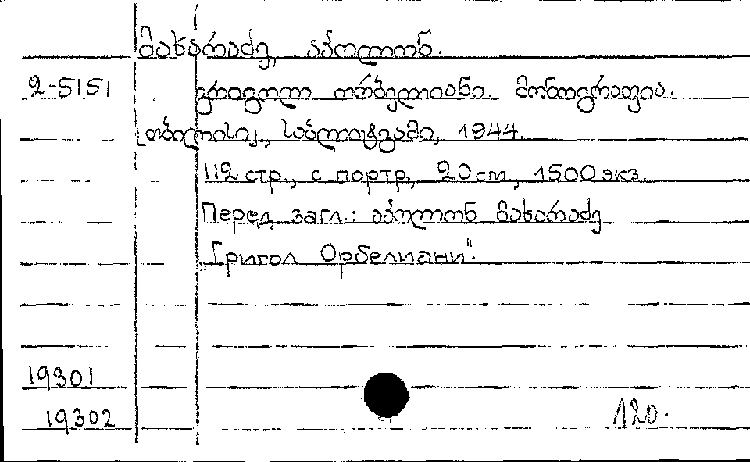 მახარაძე, აპოლონ.
2-5151 გრიგოლ ორბელიანი. მონოგრაფია.
თბილისი, საბლიტგამი, 1944.
112 стр., с портр, 20 см, 1500 экз.
Перед загл.: აპოლონ მახარაძე
"Григол Орбелиани".
19301
19302 120.